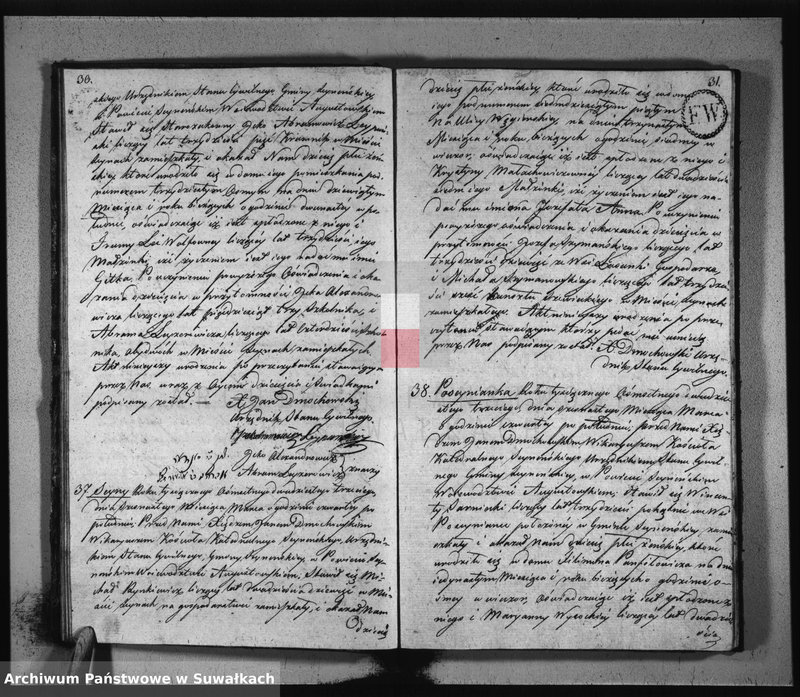 30.
skiego Urzędnikiem Stanu Cywilnego Gminy Seyneńskiey
w Powiecie Seyneńskim Wojewodztwie Augustowskim
Stawił się Starozakonny Icko Abramowicz
liczący lat trzydzieści w Mieście
Seynach zamieszkały i okazał Nam dziecię płci żeń-
skiey które urodziło się w domu iego pomieszkania pod
numerem trzydziestym Osmym na dniu dziewiątym
Miesiąca i roku bieżących o godzinie dwunastey w po-
łudnie, oświadczaiąc iż iest spłodzone z niego i
liczącey lat trzydzieści iego
Małżonki, iż życzeniem iest iego nadać mu Imie
Gitka. Po uczynieniu powyższego Oświadczenia i oka-
zania dziecięcia w przytomności Icka Alexandro-
wicza liczącego lat pięćdziesiąt trzy Szkolnika, i
Abrama Layzerowicza liczącego lat
nika, Obydwóch w Mieście Seynach zamieszkałych.
Akt ninieyszy urodzenia po przeczytaniu stawaiącym
przez Nas wraz z Oycem dziecięcia i Świadkami
podpisany został. —
X. Jan Dmochowski
Urzędnik Stanu Cywilnego
Icko Alexandrowicz
Abram Layzerowicz
37 Seyny Roku tysiącznego Osmsetnego dwudziestego trzeciego
dnia Miesiąca Marca o godzinie czwartey po
południu. Przed Nami Xiędzem Janem Dmochowskim
Wikaryuszem Kościoła Katedralnego Seyneńskiego, Urzędni-
kiem Stanu Cywilnego, Gminy Seyneńskiey w Powiecie Sey-
neńskim Wojewodztwie Augustowskim, Stawił się Mi-
chał Rynkiewicz liczący lat dwadzieścia dziewięć w Mie-
ście Seynach na gospodarstwie zamieszkały, i okazał Nam
dziecię
31.
FW
dziecię płci żeńskiey które urodziło się w domu
iego pod numerem siedmdziesiątym piątym
na Ulicy na dniu trzynastym
Miesiąca i roku bieżących o godzinie siódmey w
wieczor, oświadczaiąc iż iest spłodzone z niego i
Krystyny Małachowiczowny liczącey lat dwadzieścia
siedm iego Małżonki, iż życzeniem iest iego na-
dać mu imiona Jozefata Anna. Po uczynieniu
powyższego oświadczenia i okazania dziecięcia w
przytomności Jozefa Szymańskiego liczącego lat
trzydzieści dziewięć z Wsi Gospodarza
i Michała Szymanowskiego liczącego lat trzydzie-
ści kunsztu w Mieście Seynach
zamieszkałego. Akt ninieyszy urodzenia po prze-
czytaniu stawaiącym którzy pisać nie umieią
przez Nas podpisany został. X. Dmochowski Urzę-
dnik Stanu Cywilnego.
38. Poseynianka Roku tysiącznego Osmsetnego dwudzie-
stego trzeciego dnia Miesiąca Marca
o godzinie czwartey po południu, przed Nami Xię-
dzem Janem Dmochowskim Wikaryuszem Kościoła
Katedralnego Seyneńskiego Urzędnikiem Stanu Cywil-
nego Gminy Seyneńskiey, w Powiecie Seyneńskim
Wojewodztwie Augustowskim, Stawił się Wincen-
ty Sarnicki liczący lat trzydzieści we Wsi
Posejniance położoney w Gminie Seyneńskiey zami-
eszkały i okazał Nam dziecię płci żeńskiey, które
urodziło się w domu Filimona Panfiłowicza na dniu
iedynastym Miesiąca i roku bieżących o godzinie ó-
smey w wieczor, Oświadczaiąc iż iest spłodzone z
niego i Maryanny liczącey lat dwadzie-
ścia
Archiwum Państwowe w Suwałkach